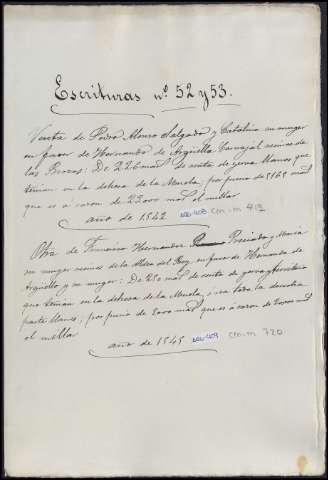 Escrituras nº 52 y 53.
Venta de Pedro Alonso Salgado y Catalina su muger
en favor de Hernando de Argüello Carvajal vecinos de
las Brozas: De 226 mrs de renta de yerva llanos que
tenian en la dehesa de la Muela, por precio de 5165 mrs
que es á razon de 22000 mrs el millar
año de 1542 cm-m 719
Otra de Francisco Hernandez Preciado y Maria
su muger vecinos de la Aldea del Rey, en favor de Hernando de
Argüello y su muger: De 250 mrs de renta de yerva
que tenian en la dehesa de la Muela, é con toda la
parte llanos; por precio de 5000 mrs que es á razon de 20000 mrs
el millar
año de 1545 cm-m 720